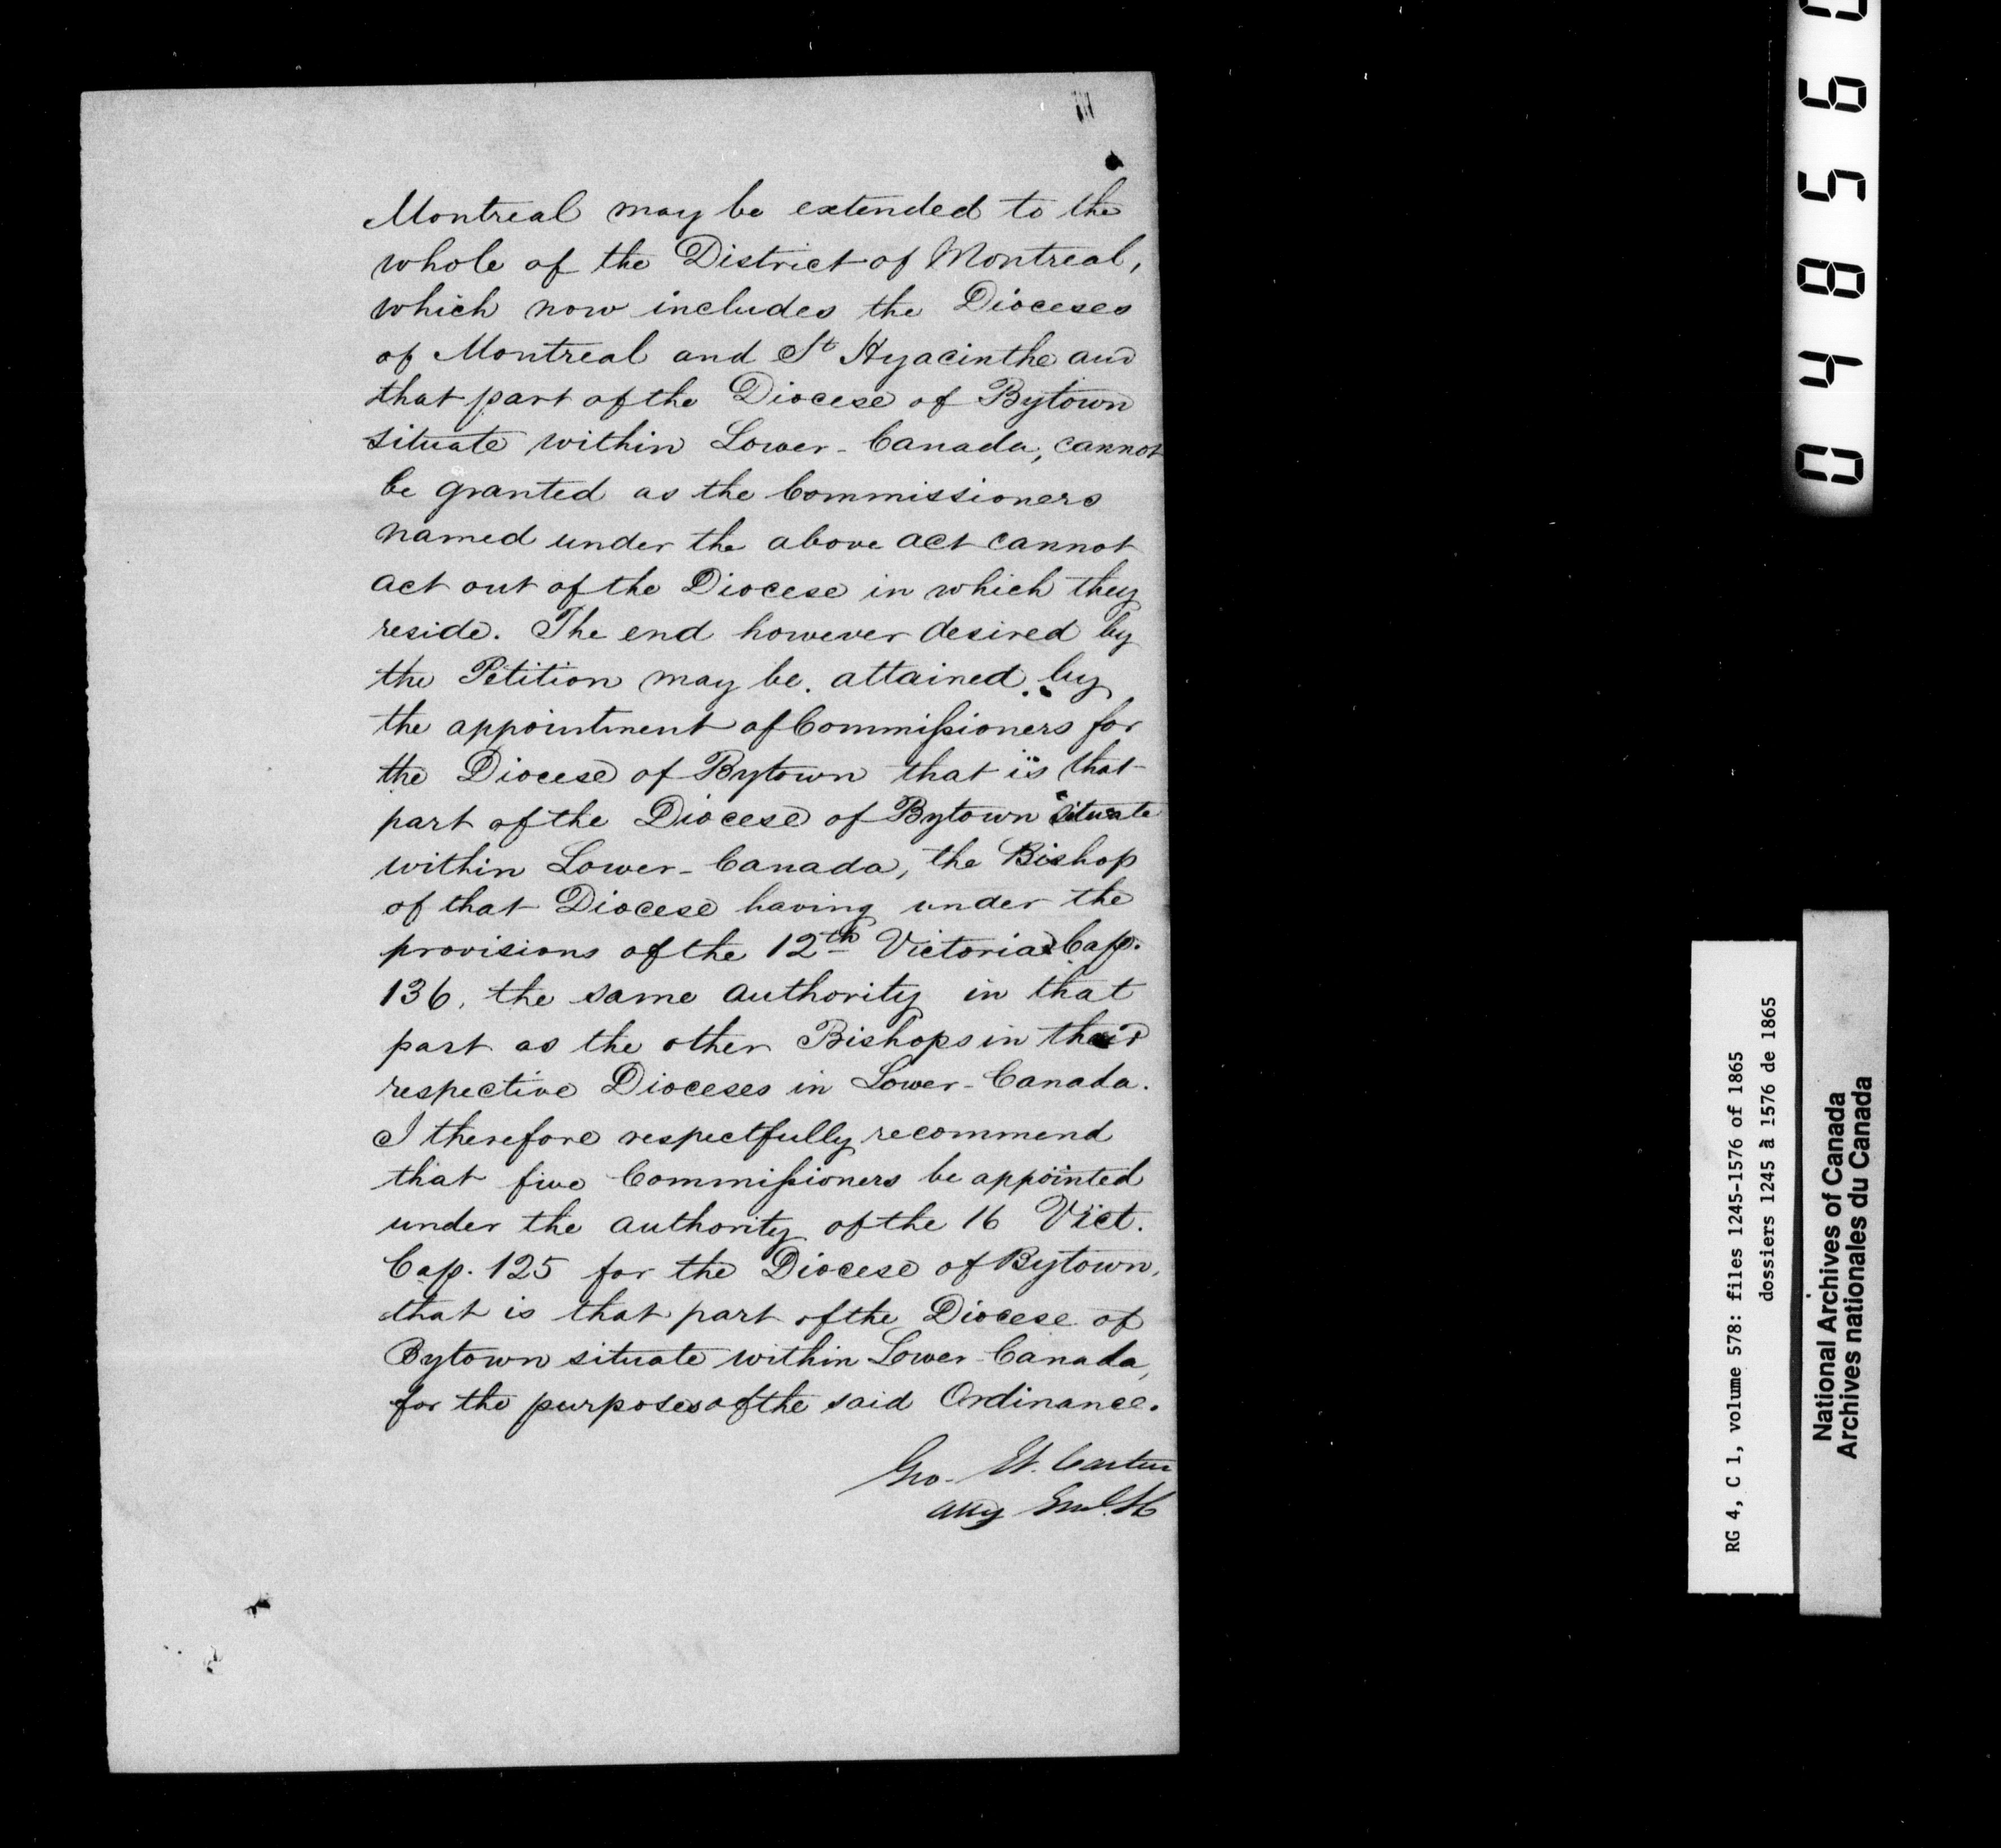 Montreal may be extended to the
whole of the District of Montreal,
which now includes the Dioceses
of Montreal and St Hyacinthe and
that part of the Diocese of Bytown
situate within Lower-Canada, cannot
be granted as the Commissioners
named under the above act cannot
act out of the Diocese in which they
reside. The end however desired by
the Petition may be attained by
the appointment of Commissioners for
the Diocese of Bytown that is that
part of the Diocese of Bytown situate
within Lower-Canada, the Bishop
of that Diocese having under the
provisions of the 12th Victoria Cap.
136, the same authority in that
part as the other Bishops in their
respective Dioceses in Lower-Canada.
I therefore respectfully recommend
that five Commissioners be appointed
under the authority of the 16 Vict.
Cap. 125 for the Diocese of Bytown,
that is that part of the Diocese of
Bytown situate within Lower-Canada,
for the purposes of the said Ordinance.
Geo. Et. Cartier
Atty Genl.
048560
RG 4, C 1, volume 578: files 1245-1576 of 1865
dossiers 1245 à 1576 de 1865
National Archives of Canada
Archives nationales du Canada